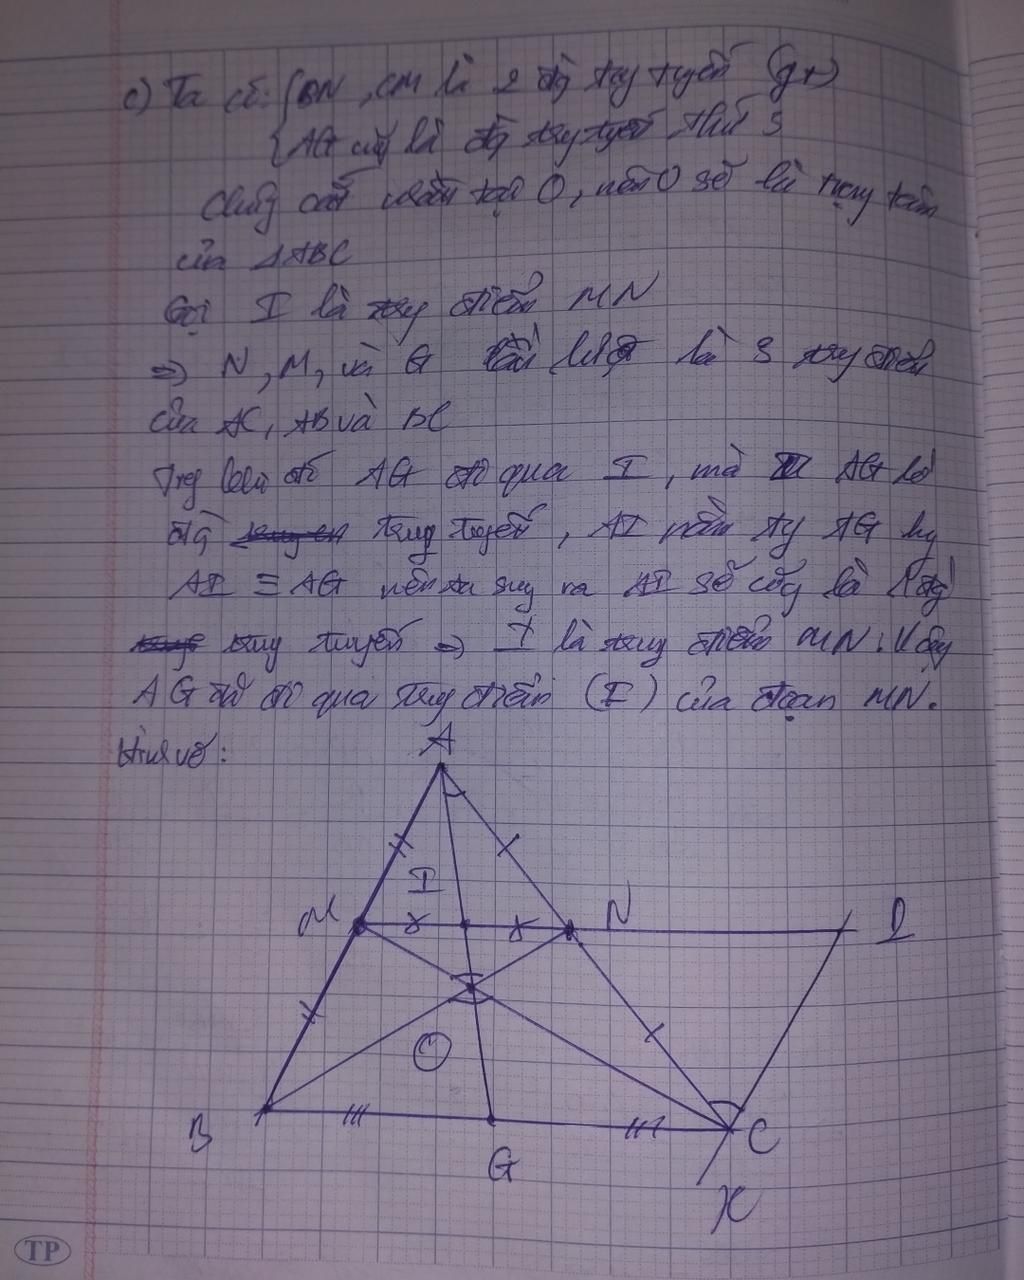 c) Ta có: {BN, CM là 2 đg trg tuyến (gt)
{AG cũg là đg trg tuyến thứ 3
Chúg cắt nhau tại O, nên O sẽ là trọng tâm
của ΔABC
Gọi I là trug điểm MN
=> N, M, và G lần lượt là 3 trug điểm
của AC, AB và BC
Trg khi đó AG đi qua I, mà AG là
đg trung tuyến, AI nằm trg AG hay
AI ≡ AG nên ta suy ra AI sẽ cũg là 1 đg
trung tuyến => I là trung điểm MN. Vậy
AG đi qua trug điểm (I) của đoạn MN.
Hình vẽ:
A
I
M N D
O
B G C
x
TP